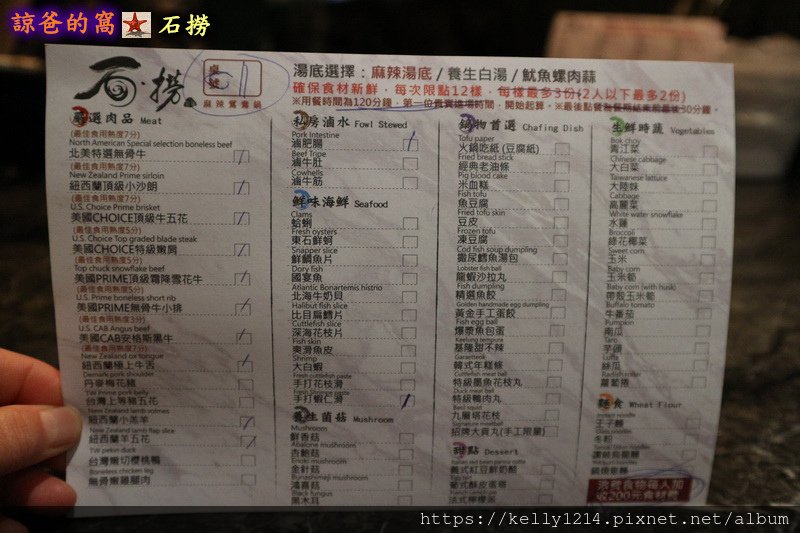 諒爸的窩 石撈
石·撈
桌號
麻辣鴛鴦鍋
湯底選擇：麻辣湯底 / 養生白湯 / 魷魚螺肉蒜
確保食材新鮮，每次限點12樣，每樣最多3份(2人以下最多2份)
※用餐時間為120分鐘，第一位貴賓進場時間，開始起算。※最後點餐為餐期結束前最後30分鐘。
嚴選肉品 Meat
(最佳食用熟度7分)
North American Special selection boneless beef
北美特選無骨牛
(最佳食用熟度7分)
New Zealand Prime sirloin
紐西蘭頂級小沙朗
(最佳食用熟度7分)
U.S. Choice Prime brisket
美國CHOICE頂級牛五花
(最佳食用熟度5分)
U.S. Choice Top graded blade steak
美國CHOICE特級嫩肩
(最佳食用熟度5分)
Top chuck snowflake beef
美國PRIME頂級霜降雪花牛
(最佳食用熟度5分)
U.S. Prime boneless short rib
美國PRIME無骨牛小排
(最佳食用熟度3分)
U.S. CAB Angus beef
美國CAB安格斯黑牛
(最佳食用熟度7分)
New Zealand ox tongue
紐西蘭極上牛舌
Demark pork shoulder
丹麥梅花豬
TW Prime pork belly
台灣上等豬五花
New Zealand lamb volmes
紐西蘭小羔羊
New Zealand lamb flap slice
紐西蘭羊五花
TW pekin duck
台灣嫩切櫻桃鴨
Boneless chicken leg
無骨嫩雞腿肉
私房滷水 Fowl Stewed
Pork Intestine
滷肥腸
Beef Tripe
滷牛肚
Cowheels
滷牛筋
鮮味海鮮 Seafood
Clams
蛤蜊
Fresh oysters
東石鮮蚵
Snapper slice
鮮鯛魚片
Dory fish
國宴魚
Atlantic Bonartemis histrio
北海牛奶貝
Halibut fish slice
比目扁鱈片
Cuttlefish slice
深海花枝片
Fish skin
爽滑魚皮
Shrimp
大白蝦
Fresh cuttlefish paste
手打花枝滑
Fresh Shrimp paste
手打蝦仁滑
養生菌菇 Mushroom
Mushroom
鮮香菇
Abalone mushroom
杏鮑菇
Enoki mushroom
金針菇
Bunashimeji mushroom
鴻喜菇
Black fungus
黑木耳
鍋物首選 Chafing Dish
Tofu paper
火鍋吃紙 (豆腐紙)
Fried bread stick
經典老油條
Pig blood cake
米血糕
Fish tofu
魚豆腐
Fried tofu skin
豆皮
Frozen tofu
凍豆腐
Cod fish soup dumpling
撒尿鱈魚湯包
Lobster fish ball
龍蝦沙拉丸
Fish dumpling
精選魚餃
Golden handmade egg dumpling
黃金手工蛋餃
Fish egg ball
爆漿魚包蛋
Keelung tempura
基隆甜不辣
Garaetteok
韓式年糕條
Cuttlefish meat ball
特級墨魚花枝丸
Duck meat ball
特級鴨肉丸
Basil squid
九層塔花枝
Signature meatball
招牌大貢丸(手工限量)
甜點 Dessert
義式紅豆鮮奶酪
Egg tart
葡式酥皮蛋塔
法式檸檬派
生鮮時蔬 Vegetables
Bok choy
青江菜
Chinese cabbage
大白菜
Taiwanese lattuce
大陸妹
Cabbage
高麗菜
White water snowflake
水蓮
Broccoli
綠花椰菜
Sweet corn
玉米
Baby corn
玉米筍
Baby corn (with husk)
帶殼玉米筍
Buffalo tomato
牛番茄
Pumpkin
南瓜
Taro
芋頭
Luffa
絲瓜
蘿蔔捲
麵食 Wheat Flour
王子麵
冬粉
浪費食物每人加
收200元食材費
https://kelly1214.pixnet.net/album